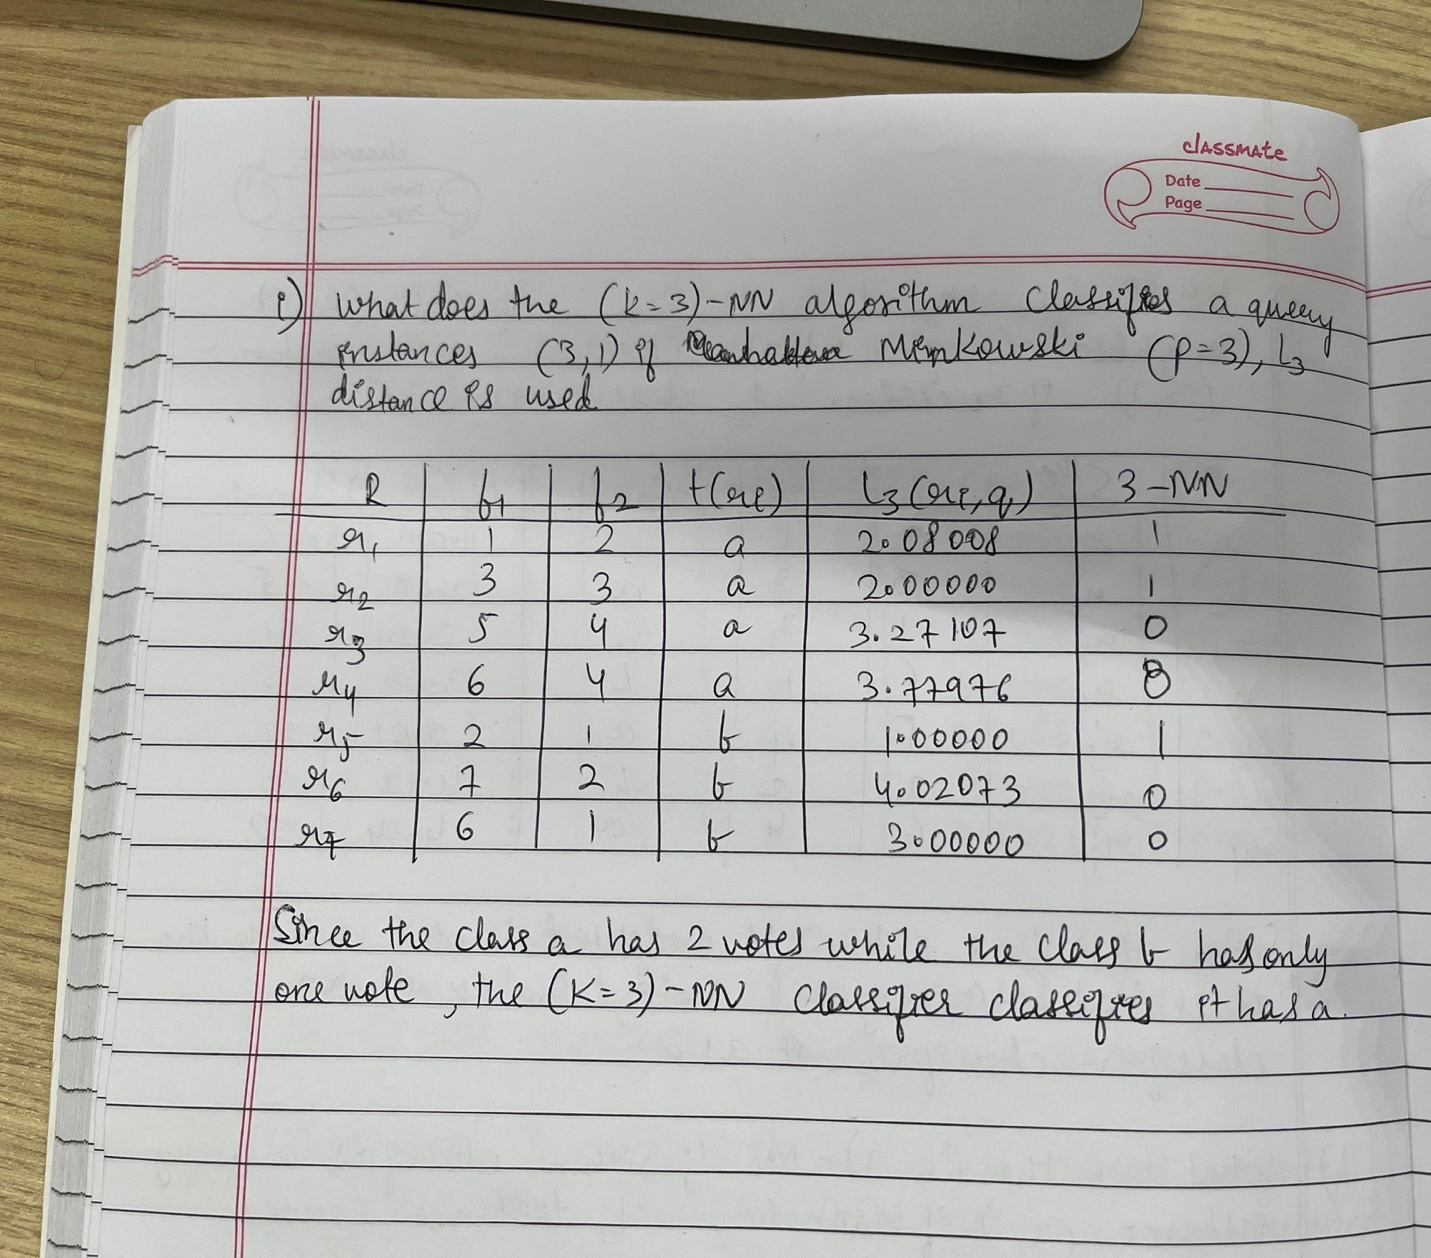 classmate
Date
Page
i) what does the (k=3)-NN algorithm classifies a query
instances (3,1) if Manhattan Minkowski (p=3), L3
distance is used
R f1 f2 t(ri) L3(ri,q) 3-NN
r1 1 2 a 2.08008 1
r2 3 3 a 2.00000 1
r3 5 4 a 3.27107 0
r4 6 4 a 3.77976 0
r5 2 1 b 1.00000 1
r6 7 2 b 4.02073 0
r7 6 1 b 3.00000 0
Since the class a has 2 votes while the class b has only
one vote, the (K=3)-NN classifier classifies it has a.